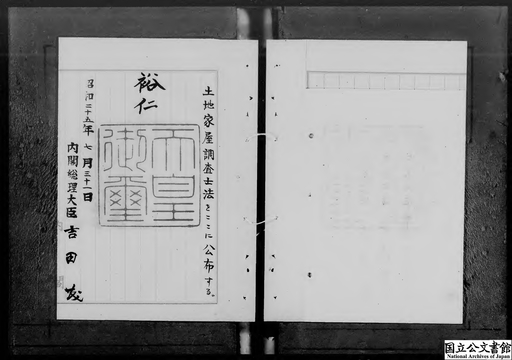 土地家屋調査士法をここに公布する。
裕仁
天皇
御璽
昭和二十五年七月三十一日
内閣総理大臣 吉田茂
国立公文書館
National Archives of Japan